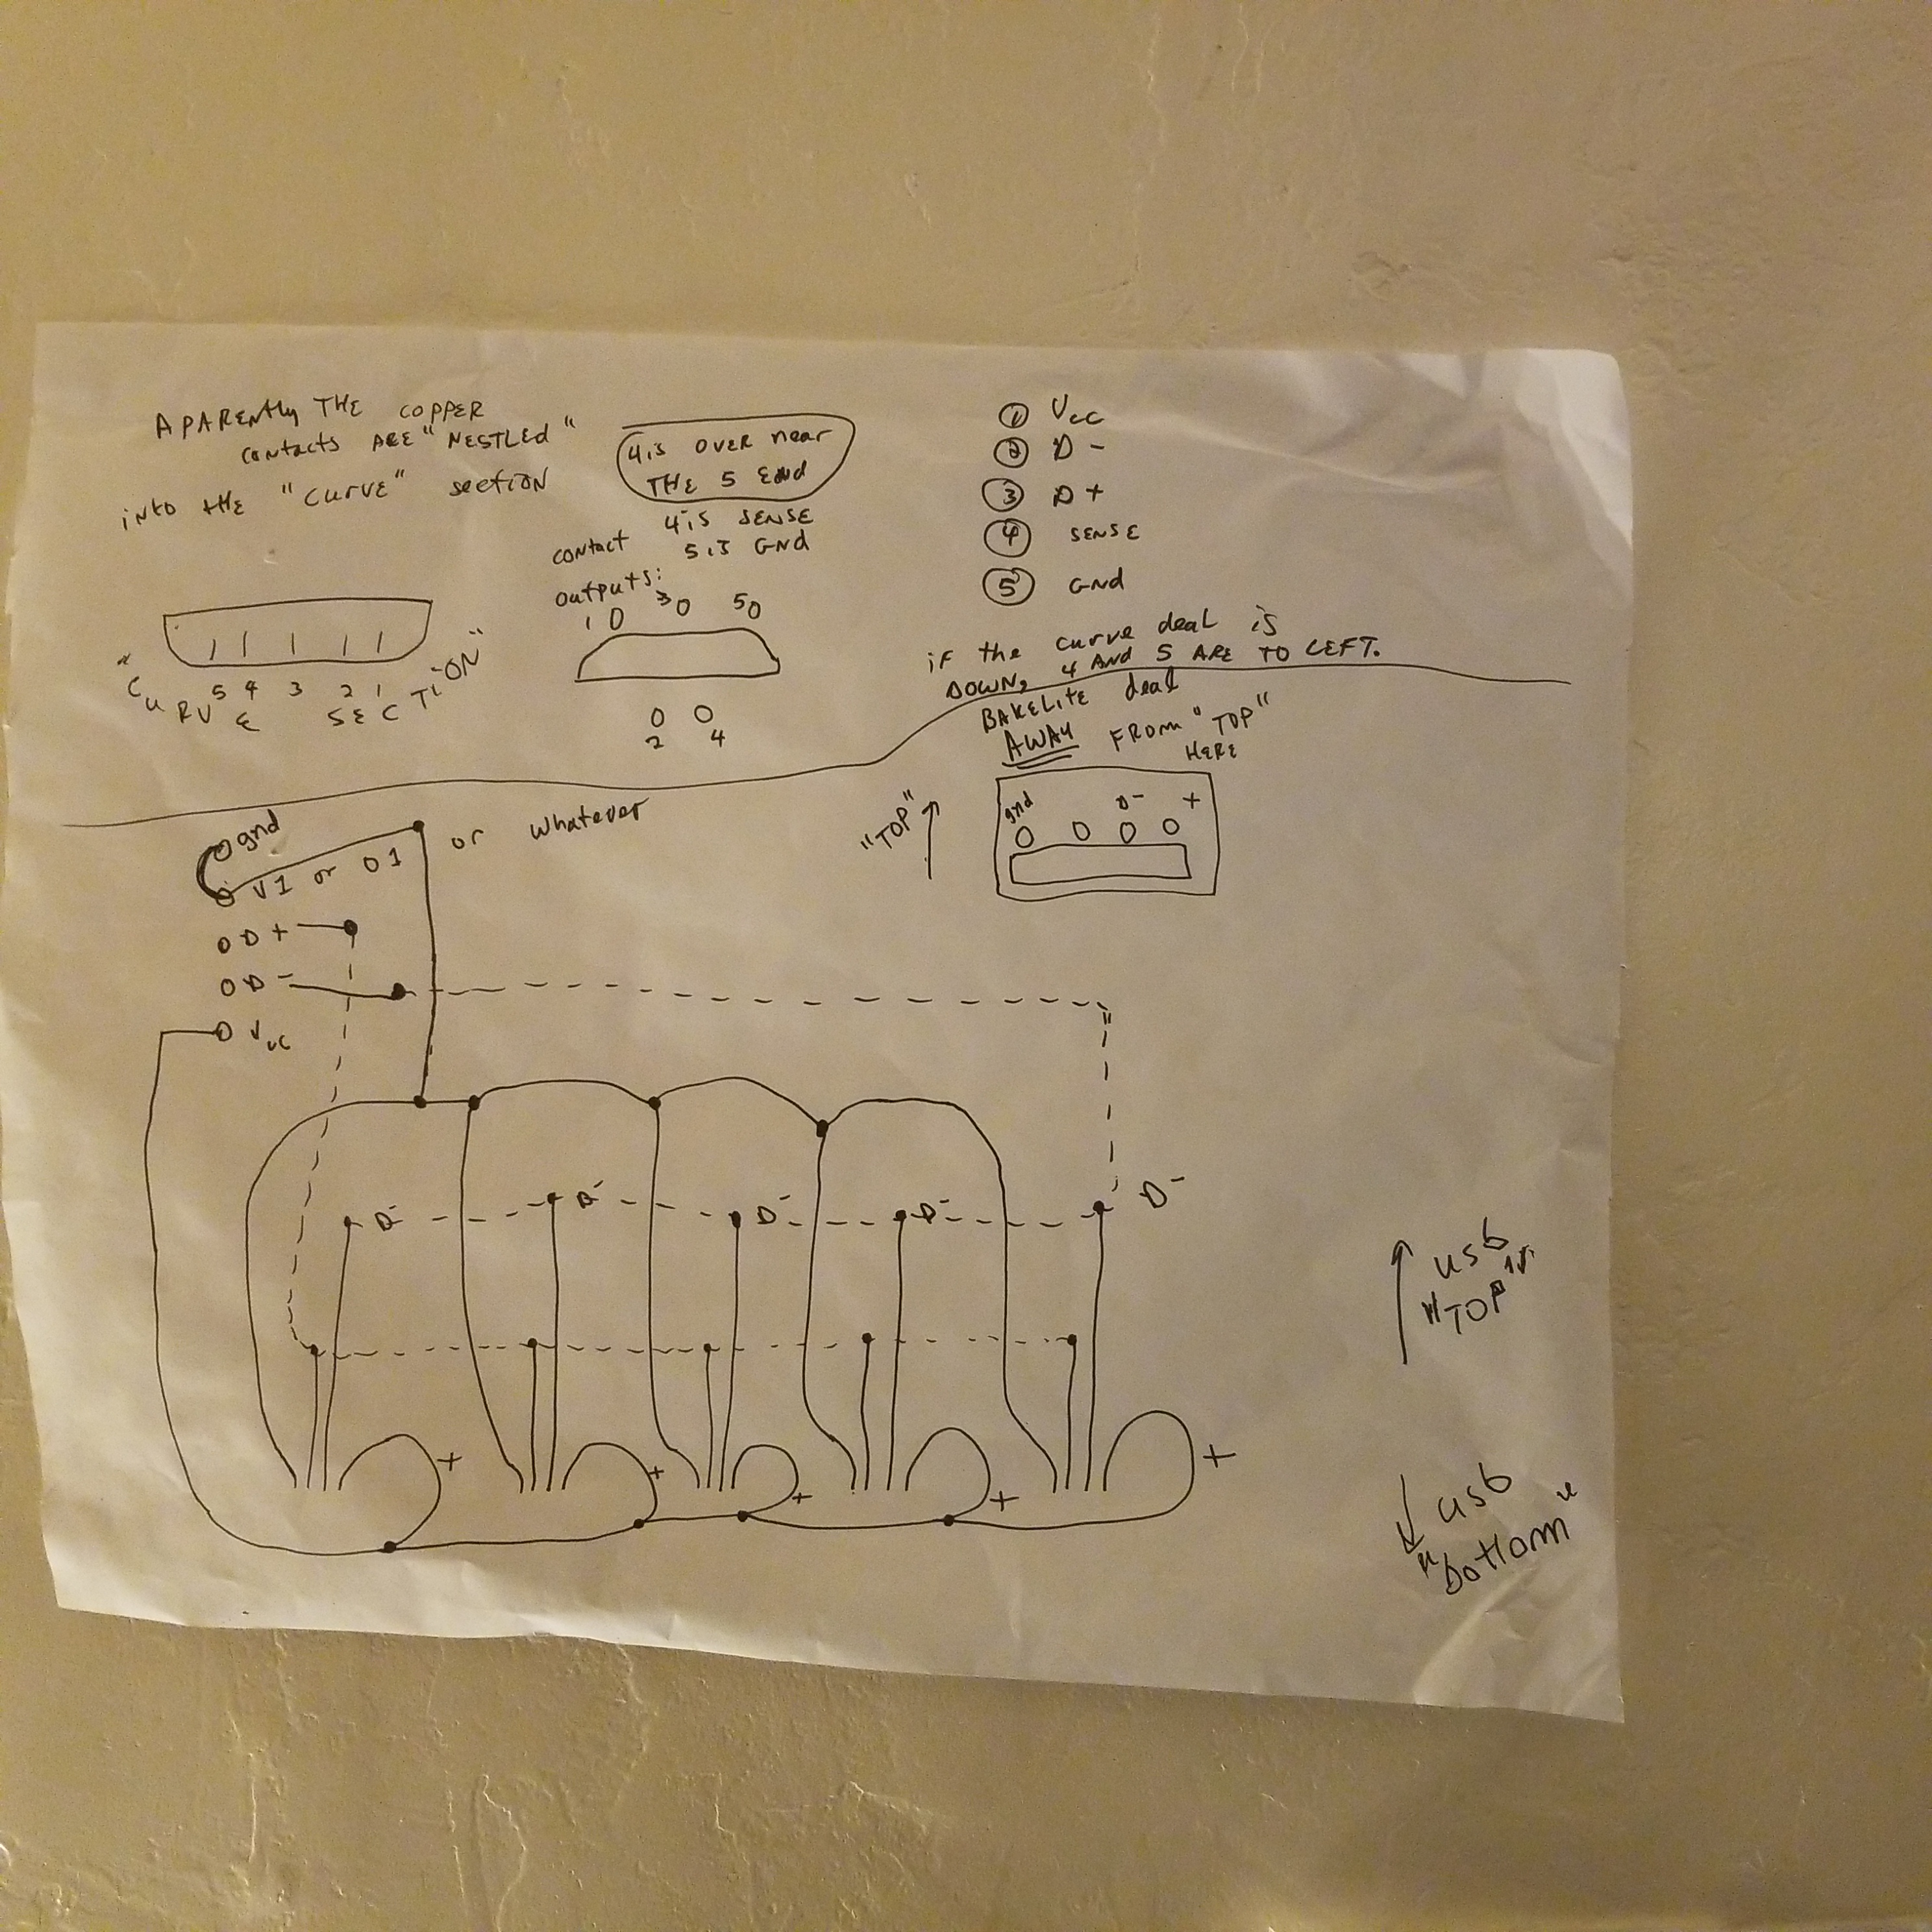 APARENTLY THE COPPER
CONTACTS ARE "NESTLED"
INTO THE "CURVE" SECTION
5 4 3 2 1
"CURVE SECTION"
4 is OVER near
THE 5 END
4 is SENSE
5 is GND
contact
outputs:
1 3 5
2 4
① Vcc
② D -
③ D +
④ SENSE
⑤ GND
if the curve deal is
DOWN, 4 AND 5 ARE TO LEFT.
BAKELITE deal
AWAY FROM "TOP"
HERE
"TOP"
gnd D- +
gnd
V1 or 01
or whatever
D +
D -
D- D- D- D- D-
+ + + + +
usb
"TOP"
usb
"bottom"